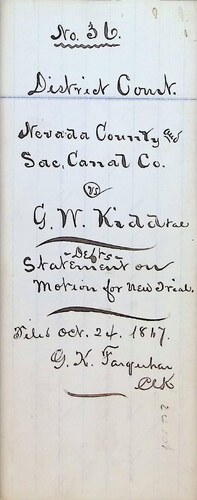 No. 36.
District Court.
Nevada County and
Sac. Canal Co.
vs
G. W. Kidd et al
Defts
Statement on
Motion for New Trial.
Filed Oct. 24. 1857.
G. K. Farquhar
Clk